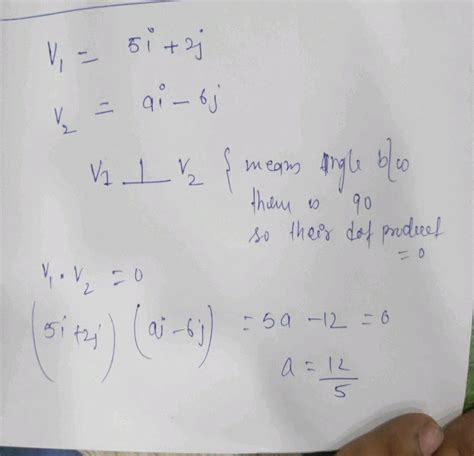 V₁ = 5i + 2j
V₂ = ai - 6j
V1 ⊥ V₂ { means angle b/w
them is 90
so their dot product
= 0
V₁ · V₂ = 0
(5i + 2j) (ai - 6j) = 5a - 12 = 0
a = 12/5